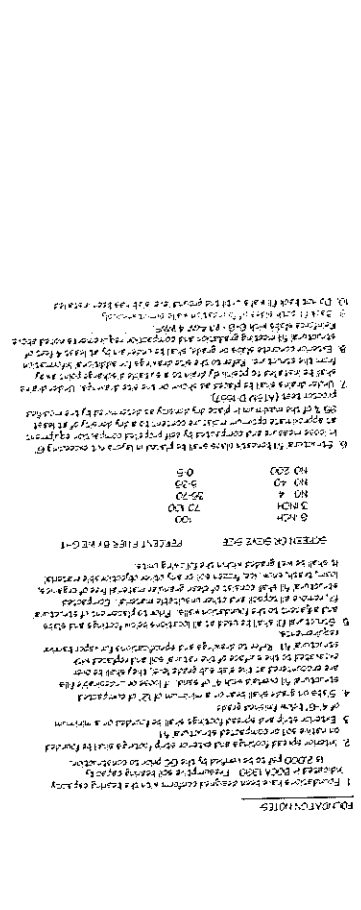 FOUNDATION NOTES
1. Foundations have been designed conform with the bearing capacity
indicated in BOCA 1990. Presumptive soil bearing capacity
is 2,000 psf to be verified by the GC prior to construction.
2. Interior spread footings and exterior strip footings shall be founded
on native soil or compacted structural fill.
3. Exterior strip and spread footings shall be founded on a minimum
of 4'-6" below finished grade.
4. Slabs on grade shall bear on a minimum of 12" of compacted
structural fill overlain with 4" of sand. If loose or uncontrolled fills
are encountered at the slab subgrade level, they shall be over
excavated to the surface of the natural soil and replaced with
structural fill. Refer to drawings and specifications for vapor barrier
requirements.
5. Structural fill shall be used at all locations below footings and slabs
and adjacent to the foundation walls. Prior to placement of structural
fill, remove all topsoil and other unsuitable material. Compacted
structural fill shall consist of clean granular material free of organics,
loam, trash, snow, ice, frozen soil or any other objectionable material.
It shall be well graded within the following limits.
SCREEN OR SIEVE SIZE PERCENT FINER BY WEIGHT
6 INCH 100
3 INCH 70-100
NO. 4 35-70
NO. 40 5-35
NO. 200 0-5
6. Structural fill beneath slabs shall be placed in layers not exceeding 6"
in loose measure and compacted by self propelled compaction equipment
at approximate optimum moisture content to a dry density of at least
95 % of the maximum in place dry density as determined by the modified
proctor test (ASTM D-1557)
7. Under drains shall be placed as shown on the site drawings. Underdrains
shall be installed to positively drain to a suitable discharge point away
from the structure. Refer to the site drawings for additional information
8. Exterior concrete slabs on grade, shall be underlain by at least 4 feet of
structural fill meeting gradation and compaction requirements noted above
Reinforce slabs with
9. Back fill both sides of foundation walls simultaneously
10. Do not back fill walls until the ground level slab has been installed